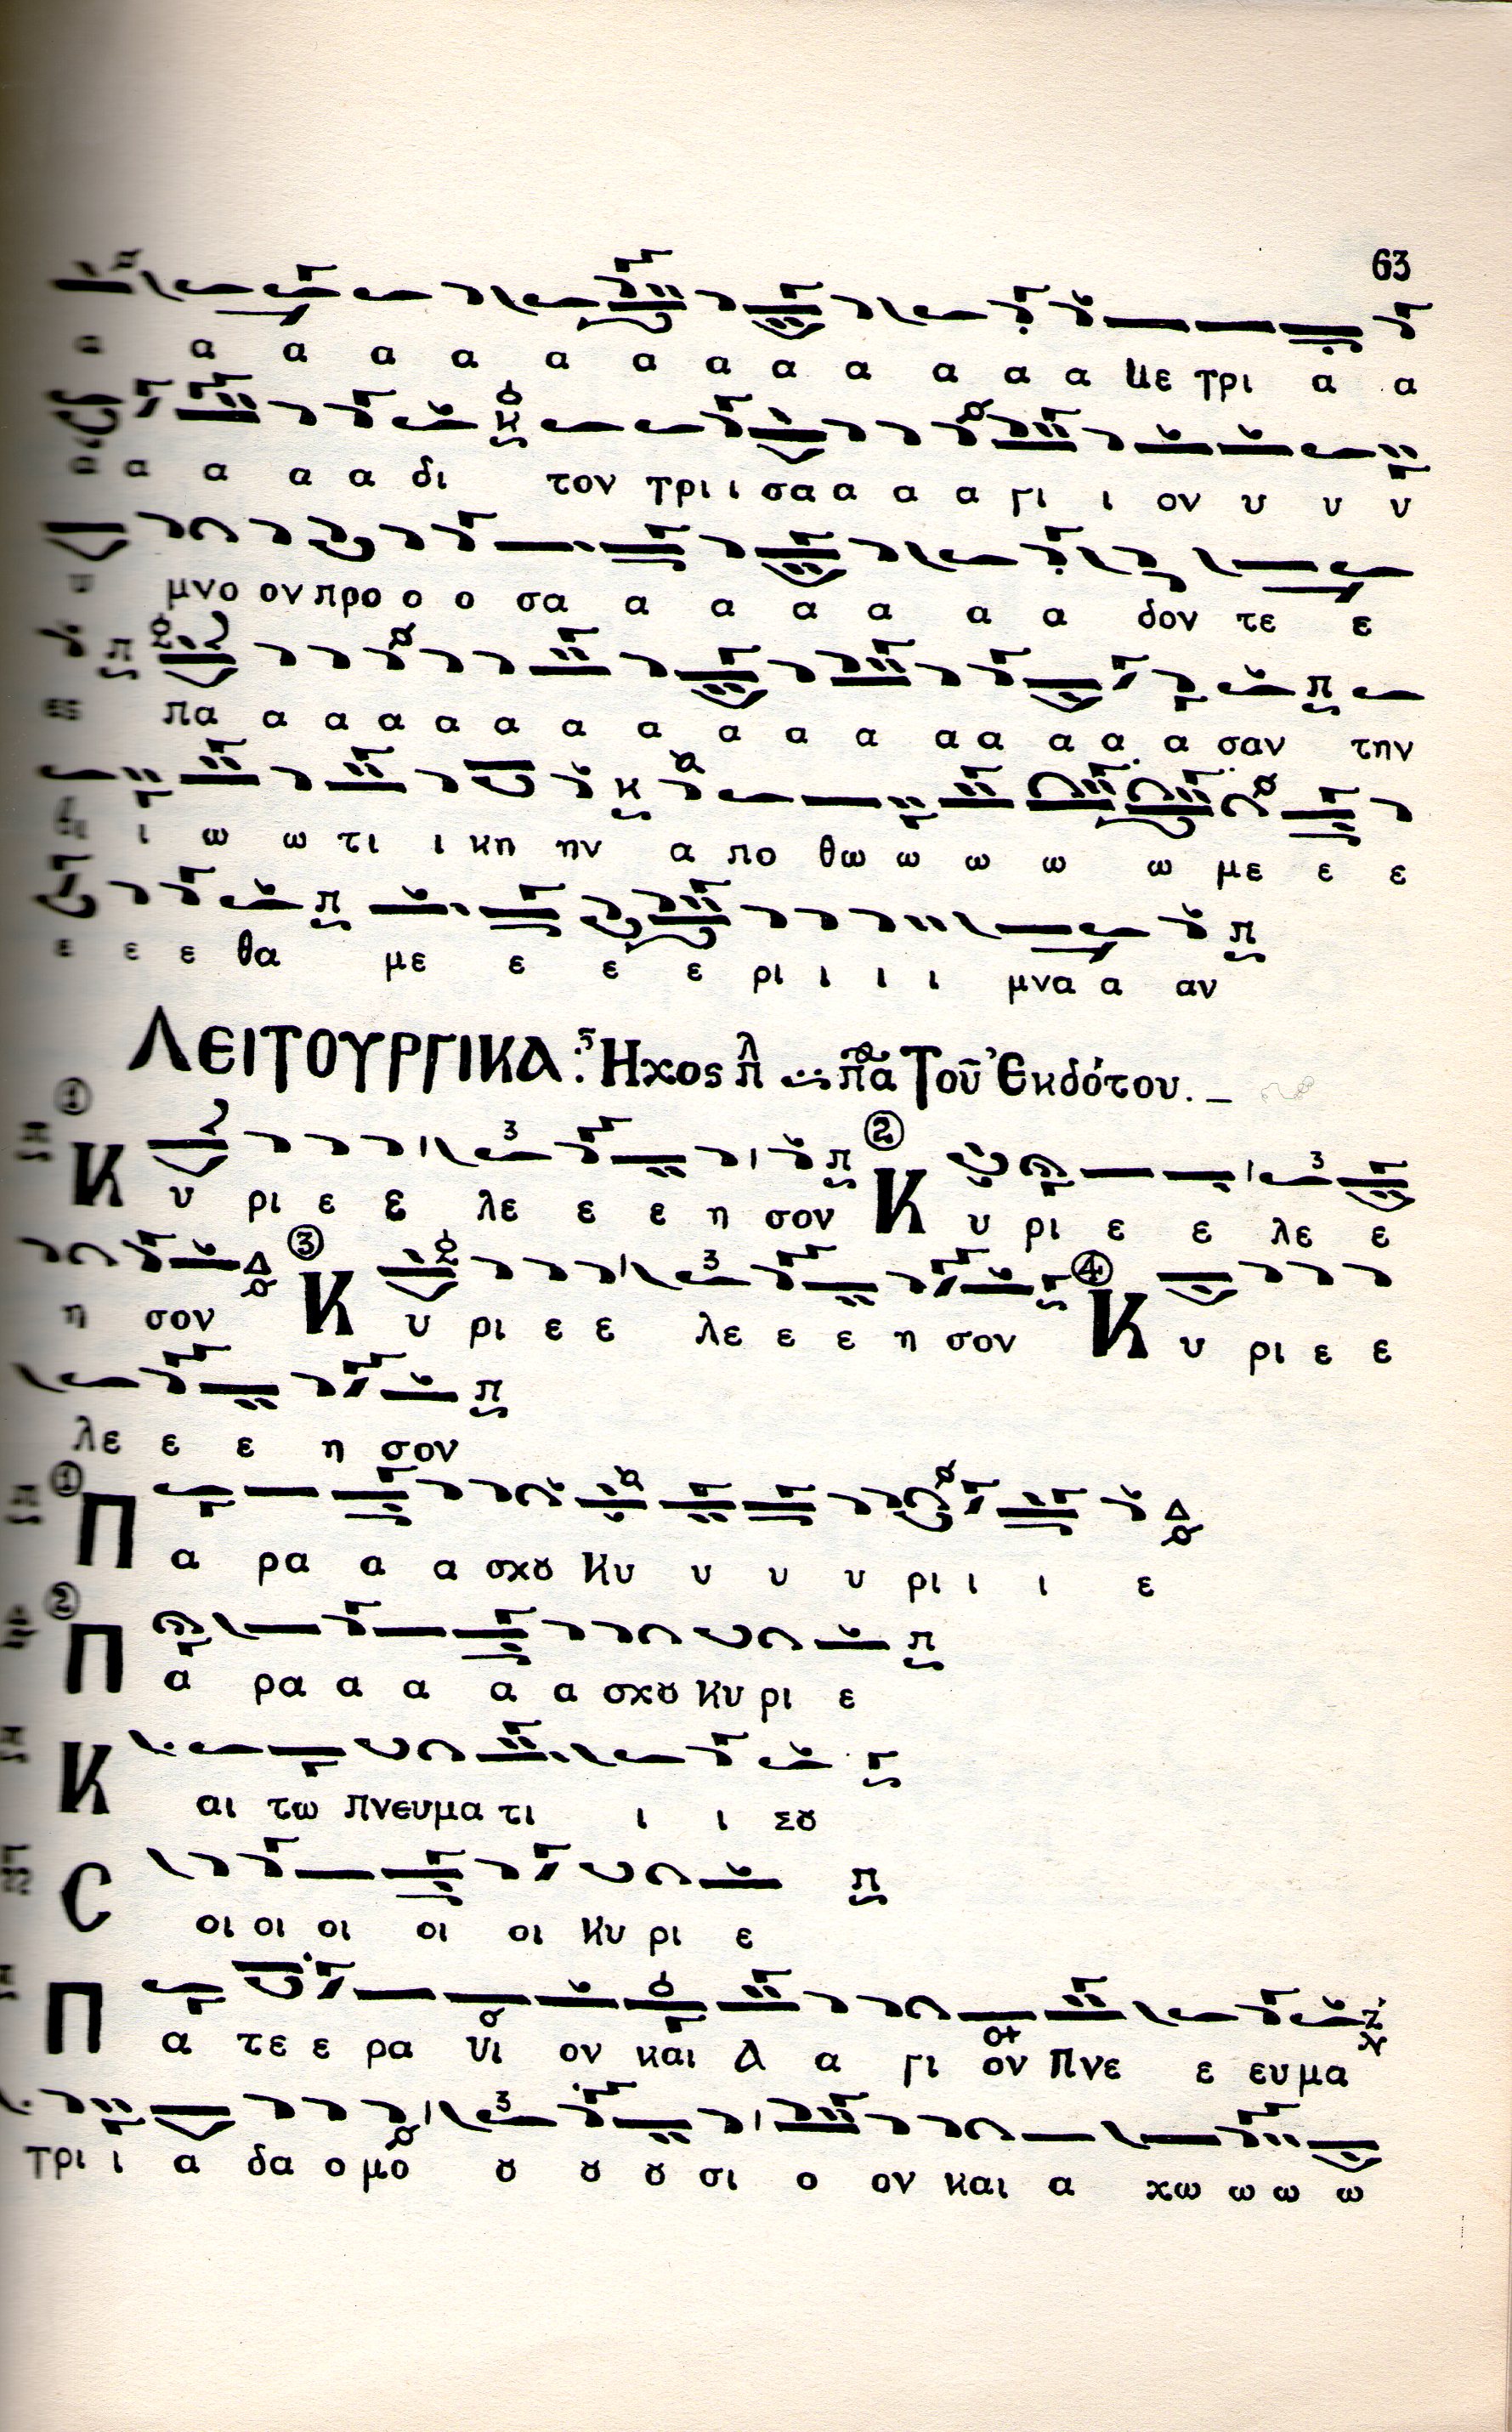 63
α α α α α α α α α α α α με τρι α α
α α α α δι τον τρι ι σα α α α γι ι ον υ υ υ
μνο ον προ ο ο σα α α α α α α δον τε ε
πα α α α α α α α α α α α α α α α σαν την
ι ω ω τι ι κη ην α πο θω ω ω ω ω με ε ε
ε ε ε θα με ε ε ε ρι ι ι ι μνα α αν
ΛΕΙΤΟΥΡΓΙΚΑ: Ἦχος λ π πα Τοῦ Ἐκδότου._
① Κ υ ρι ε ε λε ε ε η σον ② Κ υ ρι ε ε λε ε
η σον ③ Κ υ ρι ε ε λε ε ε η σον ④ Κ υ ρι ε ε
λε ε ε η σον
① Π α ρα α α σχȣ Κυ υ υ υ ρι ι ι ε
② Π α ρα α α α α σχȣ Κυ ρι ε
Κ αι τω Πνευμα τι ι ι Σȣ
C οι οι οι οι οι Κυ ρι ε
Π α τε ε ρα Υι ον και Α α γι ον Πνε ε ευμα
Τρι ι α δα ο μο ȣ ȣ ȣ σι ο ον και α χω ω ω ω